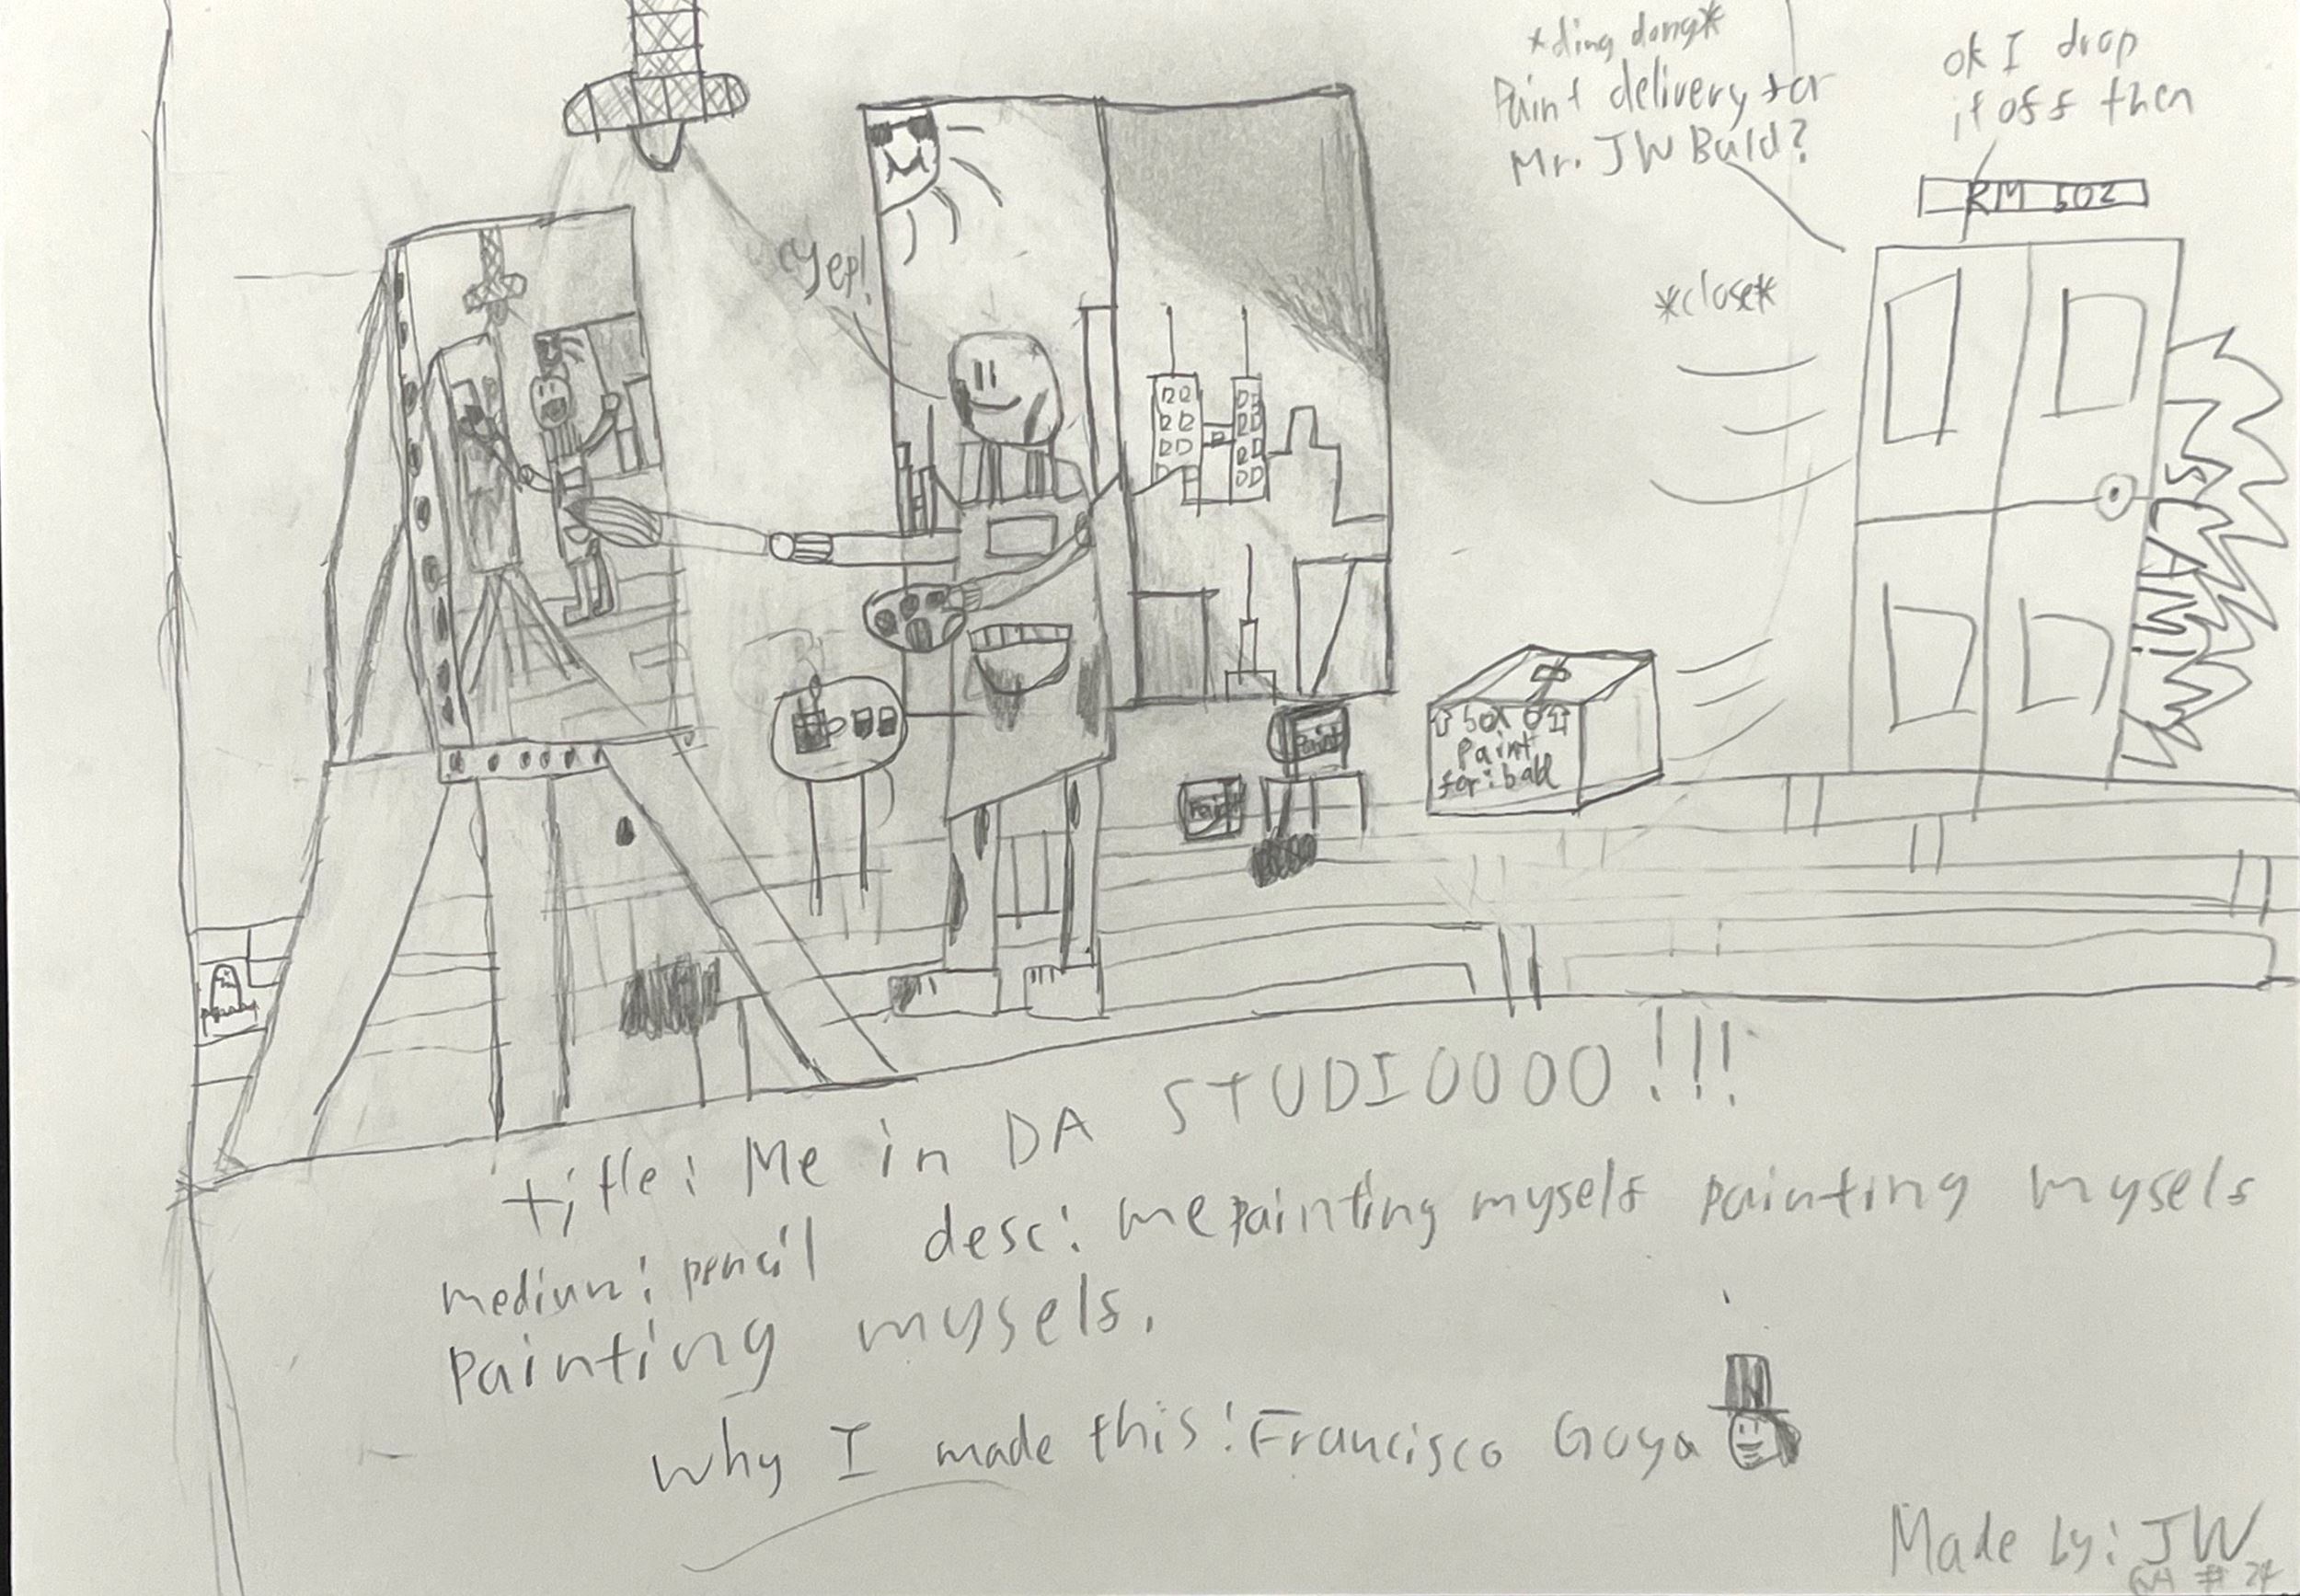 *ding dong*
Paint delivery for
Mr. JW Bald?
ok I drop
it off then
RM 502
Yep!
*close*
SLAM!
Paint
Paint
box of
Paint
for: bald
title: Me in DA STUDIOOOO!!!
medium: pencil desc: me painting myself painting myself
Painting myself.
Why I made this: Francisco Goya
Made by: JW